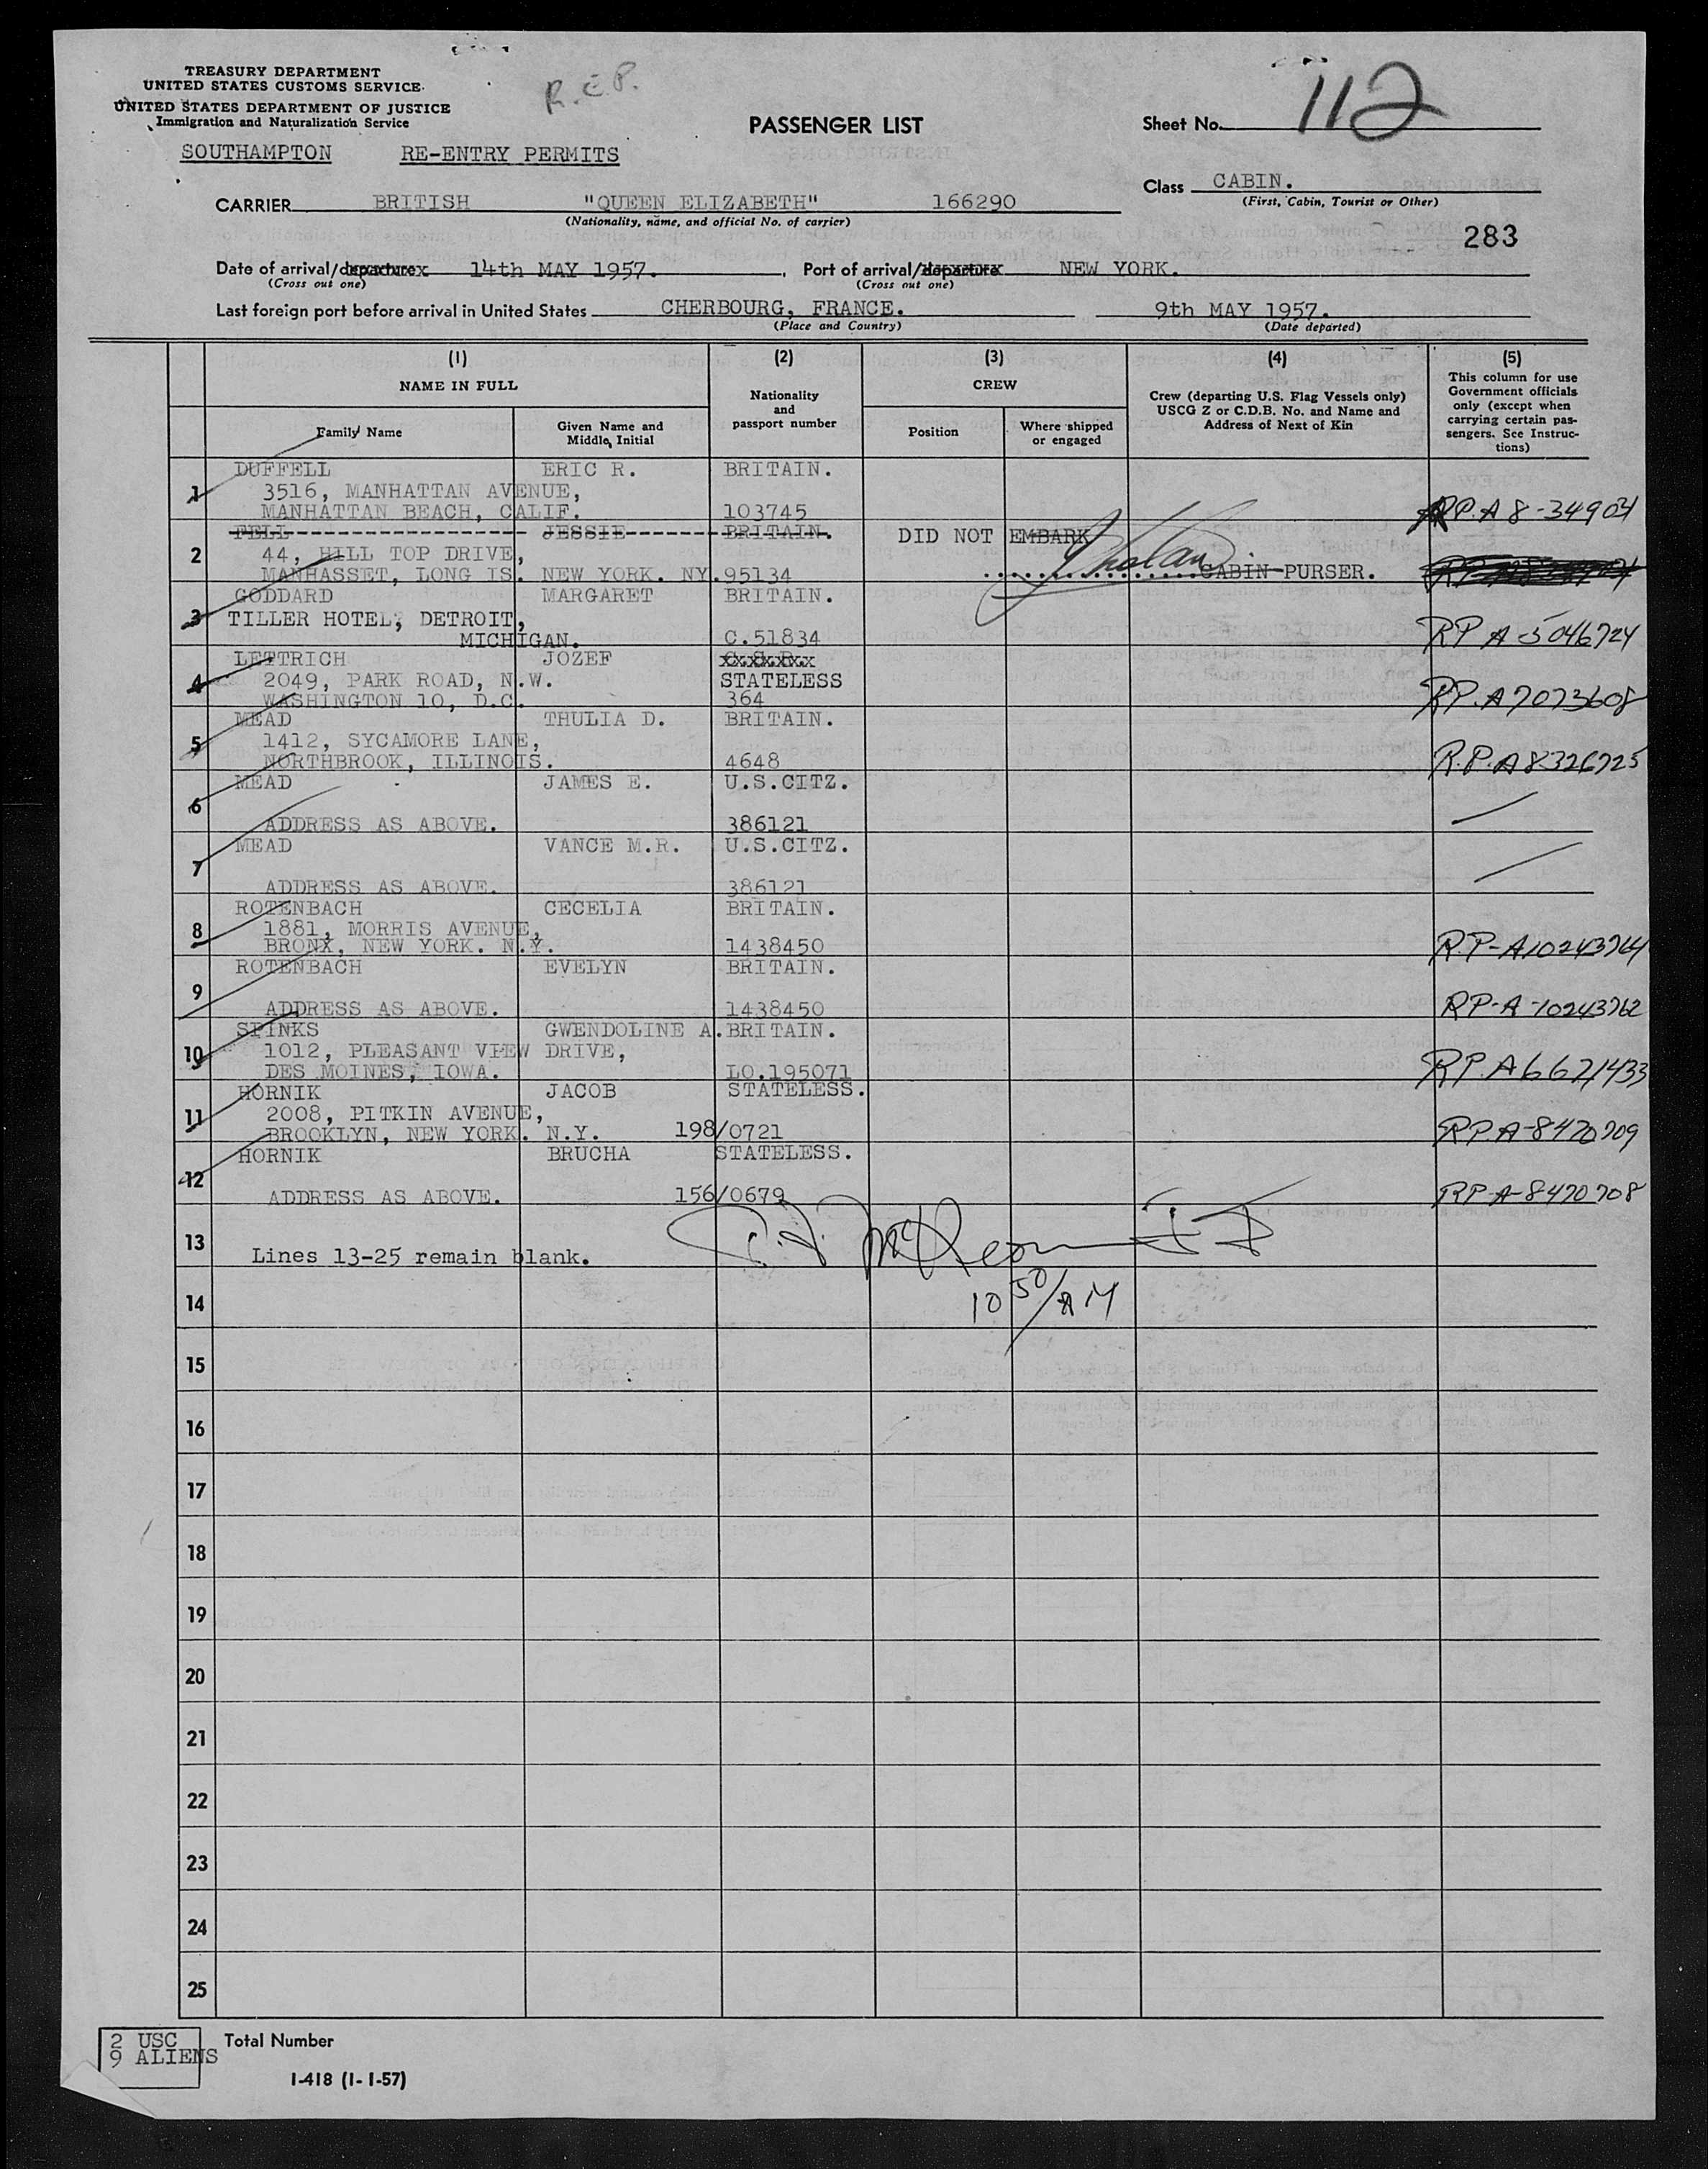 TREASURY DEPARTMENT
UNITED STATES CUSTOMS SERVICE
UNITED STATES DEPARTMENT OF JUSTICE
Immigration and Naturalization Service
R.E.P.
PASSENGER LIST
Sheet No. 112
SOUTHAMPTON RE-ENTRY PERMITS
Class CABIN.
(First, Cabin, Tourist or Other)
CARRIER BRITISH "QUEEN ELIZABETH" 166290
(Nationality, name, and official No. of carrier)
283
Date of arrival/departure 14th MAY 1957. , Port of arrival/departure NEW YORK.
(Cross out one) (Cross out one)
Last foreign port before arrival in United States CHERBOURG, FRANCE. 9th MAY 1957.
(Place and Country) (Date departed)
(1) (2) (3) (4) (5)
NAME IN FULL
Family Name
Given Name and Middle Initial
Nationality and passport number
CREW
Position
Where shipped or engaged
Crew (departing U.S. Flag Vessels only) USCG Z or C.D.B. No. and Name and Address of Next of Kin
This column for use Government officials only (except when carrying certain passengers. See Instructions)
1 DUFFELL ERIC R. BRITAIN.
3516, MANHATTAN AVENUE,
MANHATTAN BEACH, CALIF. 103745 RP.A8-34904
2 FELL JESSIE BRITAIN. DID NOT EMBARK
44, HILL TOP DRIVE,
MANHASSET, LONG IS. NEW YORK. NY. 95134 CABIN PURSER.
3 GODDARD MARGARET BRITAIN.
TILLER HOTEL, DETROIT,
MICHIGAN. C.51834 RP A-5046724
4 LETTRICH JOZEF
2049, PARK ROAD, N.W. STATELESS
WASHINGTON 10, D.C. 364 RP.A7073608
5 MEAD THULIA D. BRITAIN.
1412, SYCAMORE LANE,
NORTHBROOK, ILLINOIS. 4648 R.P.A8326725
6 MEAD JAMES E. U.S.CITZ.
ADDRESS AS ABOVE. 386121
7 MEAD VANCE M.R. U.S.CITZ.
ADDRESS AS ABOVE. 386121
8 ROTENBACH CECELIA BRITAIN.
1881, MORRIS AVENUE,
BRONX, NEW YORK. N.Y. 1438450 R.P-A10243764
9 ROTENBACH EVELYN BRITAIN.
ADDRESS AS ABOVE. 1438450 RP-A-10243762
10 SPINKS GWENDOLINE A. BRITAIN.
1012, PLEASANT VIEW DRIVE,
DES MOINES, IOWA. LO.195071 RP.A6621433
11 HORNIK JACOB STATELESS.
2008, PITKIN AVENUE,
BROOKLYN, NEW YORK. N.Y. 198/0721 RP.A-8470709
12 HORNIK BRUCHA STATELESS.
ADDRESS AS ABOVE. 156/0679 RP-A-8470708
13 Lines 13-25 remain blank.
14 10 50/AM
15
16
17
18
19
20
21
22
23
24
25
2 USC
9 ALIENS
Total Number
I-418 (1-1-57)